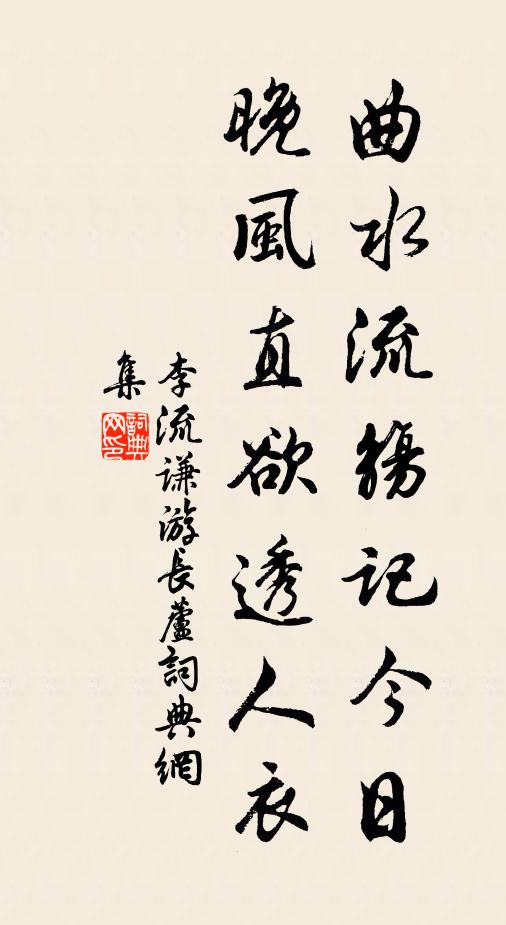 曲水流觴記今日
晚風直欲透人衣
李流謙游長蘆詞典網
集
詞典
网印